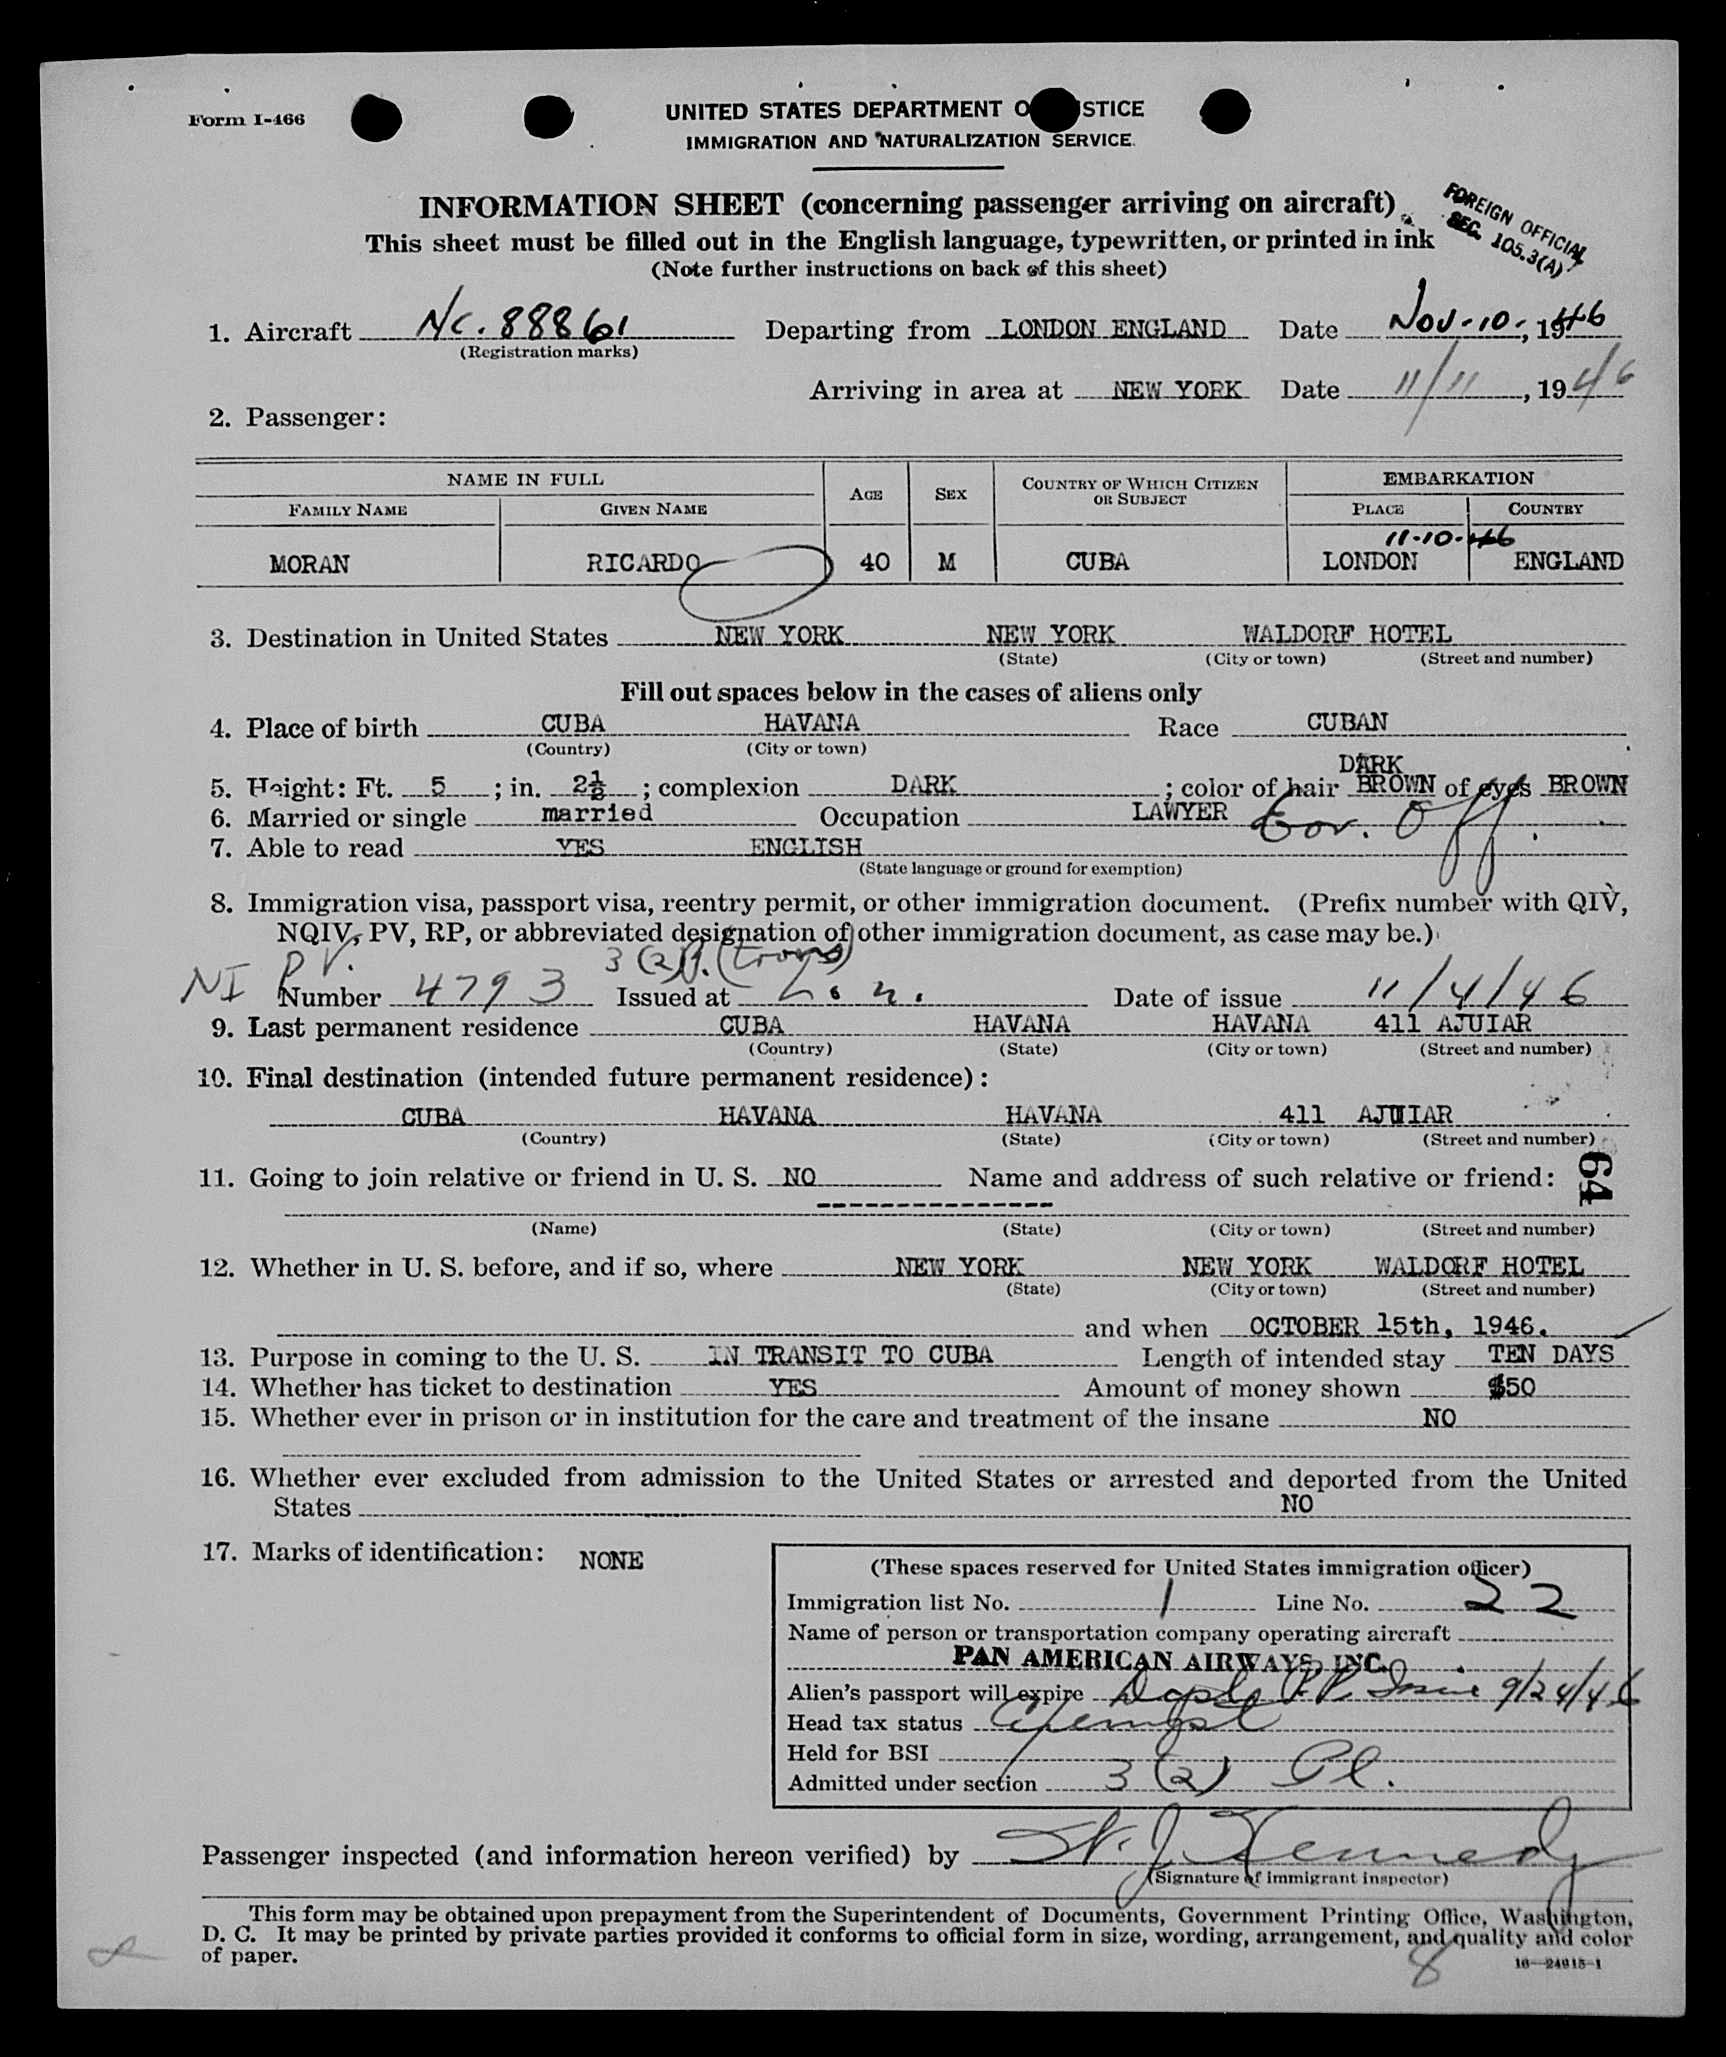 Form I-466
UNITED STATES DEPARTMENT O STICE
IMMIGRATION AND NATURALIZATION SERVICE
INFORMATION SHEET (concerning passenger arriving on aircraft)
FOREIGN OFFICIAL
SEC. 105.3(A)
This sheet must be filled out in the English language, typewritten, or printed in ink
(Note further instructions on back of this sheet)
1. Aircraft NC. 88861 Departing from LONDON ENGLAND Date Nov-10-, 1946
(Registration marks)
Arriving in area at NEW YORK Date 11/11, 1946
2. Passenger:
NAME IN FULL AGE SEX COUNTRY OF WHICH CITIZEN OR SUBJECT EMBARKATION
FAMILY NAME GIVEN NAME PLACE COUNTRY
11-10-46
MORAN RICARDO 40 M CUBA LONDON ENGLAND
3. Destination in United States NEW YORK NEW YORK WALDORF HOTEL
(State) (City or town) (Street and number)
Fill out spaces below in the cases of aliens only
4. Place of birth CUBA HAVANA Race CUBAN
(Country) (City or town)
DARK
5. Height: Ft. 5; in. 2½; complexion DARK; color of hair BROWN of eyes BROWN
6. Married or single married Occupation LAWYER Gov. Off.
7. Able to read YES ENGLISH
(State language or ground for exemption)
8. Immigration visa, passport visa, reentry permit, or other immigration document. (Prefix number with QIV,
NQIV, PV, RP, or abbreviated designation of other immigration document, as case may be.)
NI PV. 3(2) (trans)
Number 4793 Issued at Lon. Date of issue 11/4/46
9. Last permanent residence CUBA HAVANA HAVANA 411 AJUIAR
(Country) (State) (City or town) (Street and number)
10. Final destination (intended future permanent residence):
CUBA HAVANA HAVANA 411 AJUIAR
(Country) (State) (City or town) (Street and number)
11. Going to join relative or friend in U. S. NO Name and address of such relative or friend:
64
---------------
(Name) (State) (City or town) (Street and number)
12. Whether in U. S. before, and if so, where NEW YORK NEW YORK WALDORF HOTEL
(State) (City or town) (Street and number)
and when OCTOBER 15th, 1946.
13. Purpose in coming to the U. S. IN TRANSIT TO CUBA Length of intended stay TEN DAYS
14. Whether has ticket to destination YES Amount of money shown $50
15. Whether ever in prison or in institution for the care and treatment of the insane NO
16. Whether ever excluded from admission to the United States or arrested and deported from the United
States NO
17. Marks of identification: NONE
(These spaces reserved for United States immigration officer)
Immigration list No. 1 Line No. 22
Name of person or transportation company operating aircraft
PAN AMERICAN AIRWAYS, INC.
Alien's passport will expire Dipl. P.P. Issue 9/24/46
Head tax status Exempt
Held for BSI
Admitted under section 3(2) Cl.
Passenger inspected (and information hereon verified) by W. J. Kennedy
(Signature of immigrant inspector)
This form may be obtained upon prepayment from the Superintendent of Documents, Government Printing Office, Washington,
D. C. It may be printed by private parties provided it conforms to official form in size, wording, arrangement, and quality and color
of paper.
8
16—24915-1